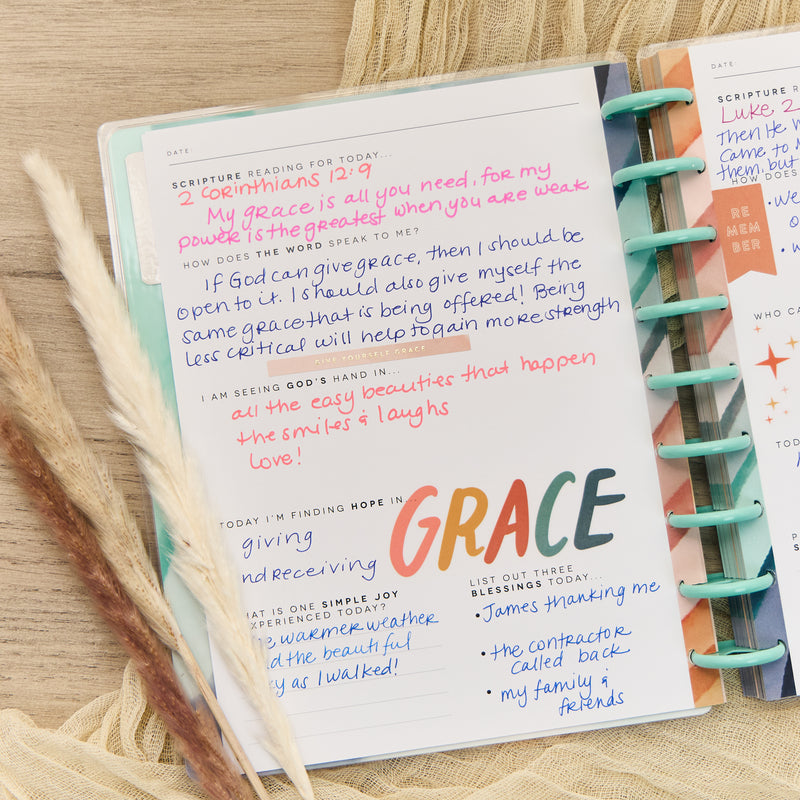 DATE:
SCRIPTURE READING FOR TODAY...
2 Corinthians 12:9
My grace is all you need, for my
power is the greatest when you are weak
HOW DOES THE WORD SPEAK TO ME?
If God can give grace, then I should be
open to it. I should also give myself the
same grace that is being offered! Being
less critical will help to gain more strength
GIVE YOURSELF GRACE
I AM SEEING GOD'S HAND IN...
all the easy beauties that happen
the smiles & laughs
love!
TODAY I'M FINDING HOPE IN...
GRACE
giving
nd receiving
HAT IS ONE SIMPLE JOY
XPERIENCED TODAY?
e warmer weather
nd the beautiful
ky as I walked!
LIST OUT THREE
BLESSINGS TODAY...
• James thanking me
• the contractor
called back
• my family &
friends
DATE:
SCRIPTURE R
Luke 2
Then He w
came to
them, but
HOW DOES
RE
MEM
BER
• we
WHO CA
TOD